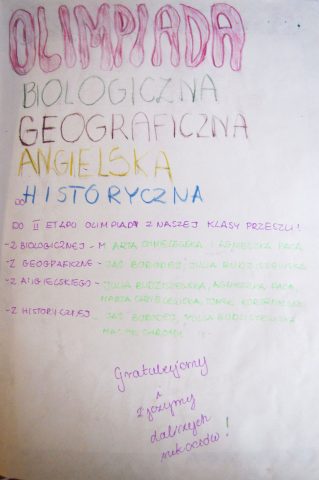 OLIMPIADA
BIOLOGICZNA
GEOGRAFICZNA
ANGIELSKA
HISTORYCZNA
DO II ETAPU OLIMPIADY Z NASZEJ KLASY PRZESZLI!
-Z BIOLOGICZNEJ - MARTA CHMIELEWSKA I AGNIESZKA PACA
-Z GEOGRAFICZNE - JAŚ BORODEJ, JULIA BUDZISZEWSKA
-Z ANGIELSKIEGO - JULIA BUDZISZEWSKA, AGNIESZKA PACA,
MARTA CHMIELEWSKA,
-Z HISTORYCZNEJ - JAŚ BORODEJ, JULIA BUDZISZEWSKA
Gratulujemy
i
życzymy
dalszych
sukcesów!